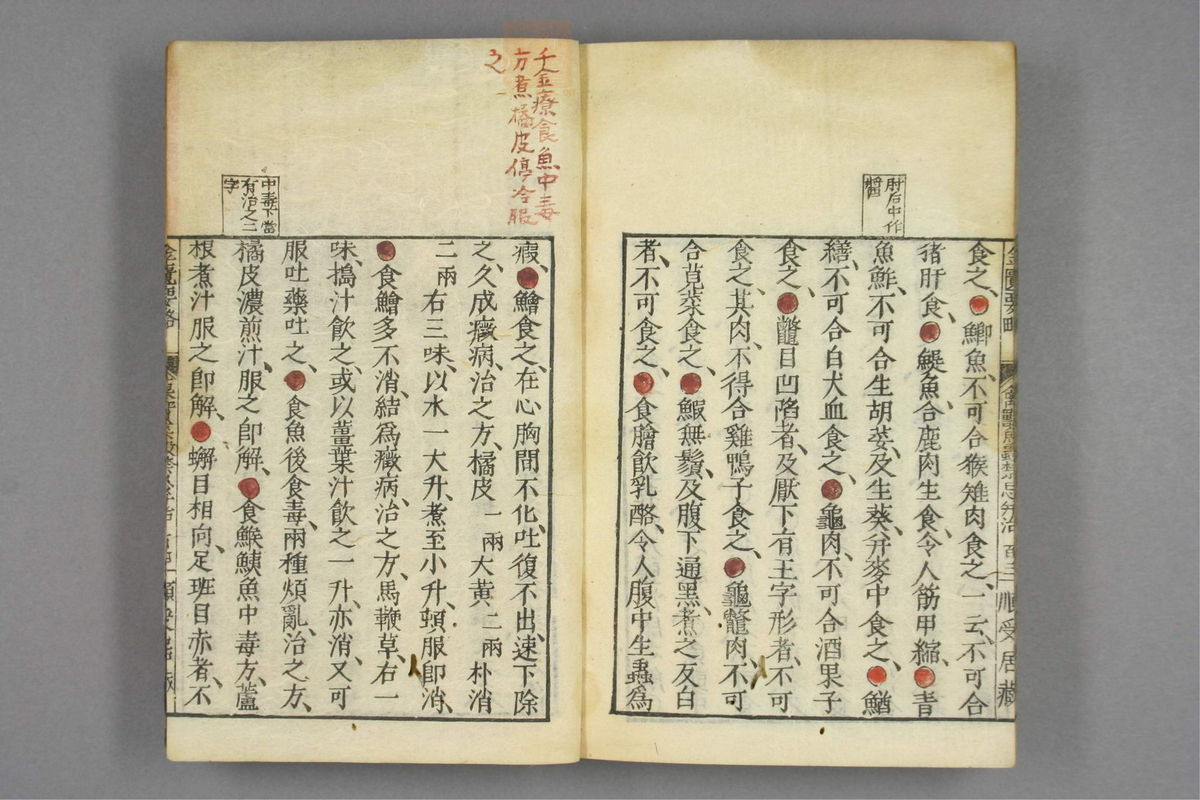 肘后中作
醬
食之、鯽魚不可合猴雉肉食之、一云、不可合
猪肝食、鯷魚合鹿肉生食、令人筋甲縮、青
魚鮓、不可合生胡荽、及生葵、并麥中食之、鰌
鱔、不可合白犬血食之、龜肉、不可合酒果子
食之、鼈目凹陷者、及厭下有王字形者、不可
食之、其肉、不得合雞鴨子食之、龜鼈肉、不可
合莧菜食之、鰕無鬚、及腹下通黑、煮之反白
者、不可食之、食膾飲乳酪、令人腹中生蟲爲
千金療食魚中毒
方煮橘皮停冷服
之
中毒下當
有治之二
字
瘕、鱠食之、在心胸間不化、吐復不出、速下除
之、久成癥病、治之方、橘皮一兩大黃二兩朴消
二兩右三味、以水一大升、煮至小升、頓服即消、
食鱠多不消、結爲癥病、治之方、馬鞭草、右一
味、搗汁飲之、或以薑葉汁飲之一升、亦消、又可
服吐藥吐之、食魚後食毒、兩種煩亂、治之方、
橘皮濃煎汁、服之即解、食鯸鮧魚中毒方、蘆
根煮汁服之即解、蠏目相向、足班目赤者、不